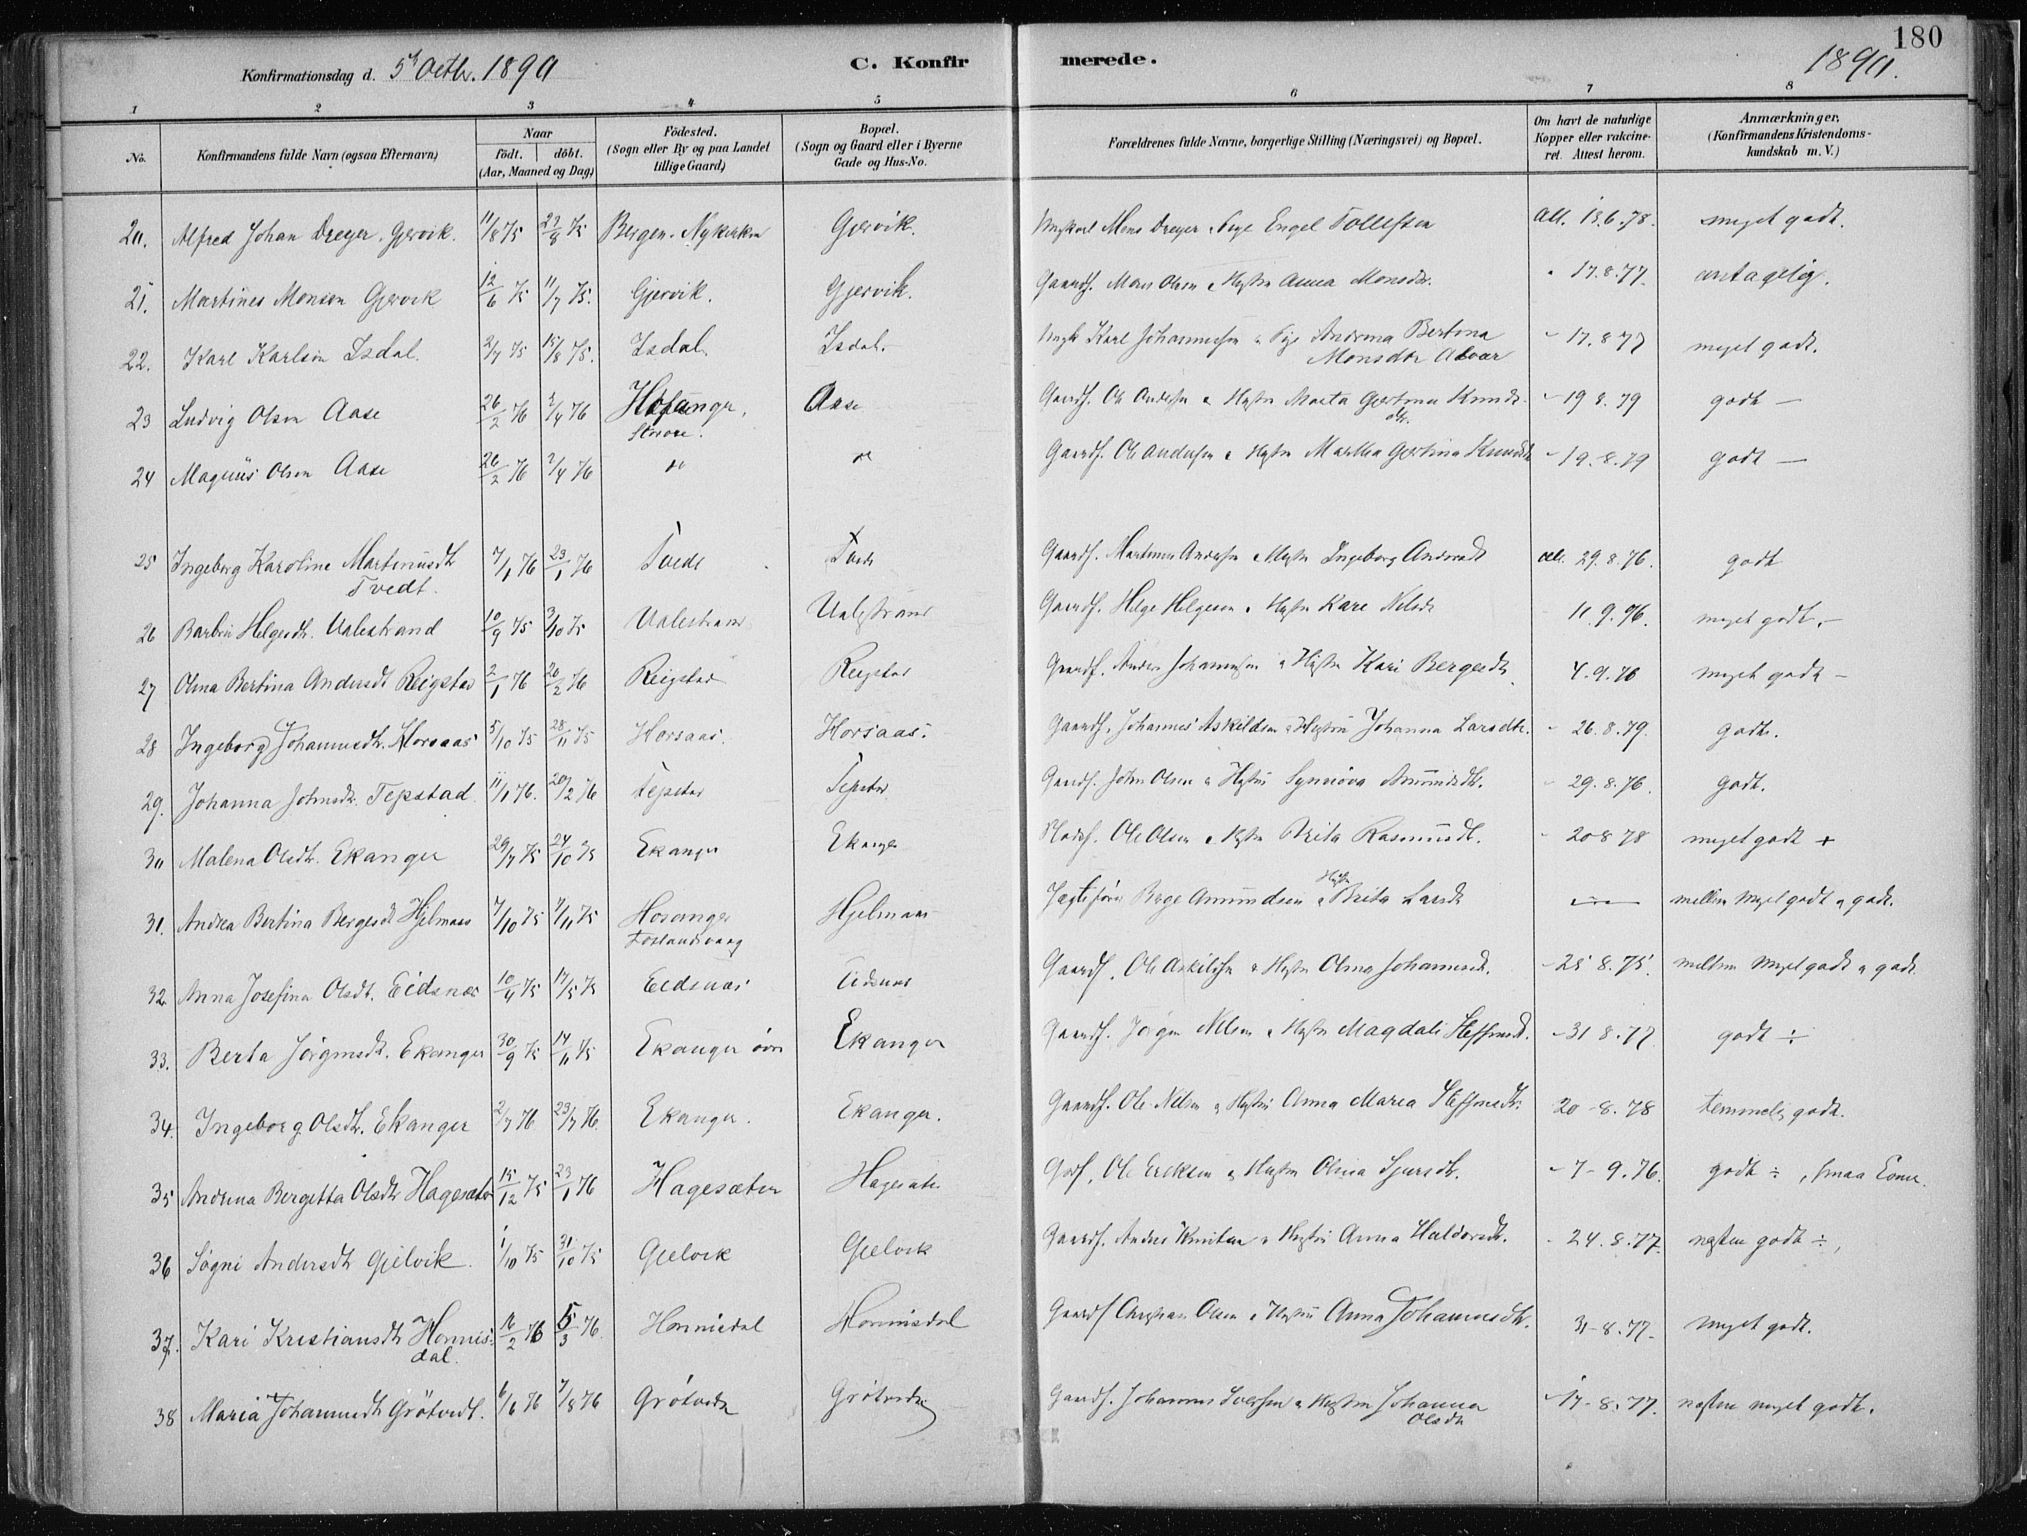 180
Konfirmationsdag d. 5te Octbr. 1890
C. Konfirmerede.
1890.
1 2 3 4 5 6 7 8
No. | Konfirmandens fulde Navn (ogsaa Efternavn) | Naar födt. döbt. (Aar, Maaned og Dag) | Födested. (Sogn eller By og paa Landet tillige Gaard) | Bopæl. (Sogn og Gaard eller i Byerne Gade og Hus-No. | Forældrenes fulde Navne, borgerlige Stilling (Næringsvei) og Bopæl. | Om havt de naturlige Kopper eller vakcineret. Attest herom. | Anmærkninger, (Konfirmandens Kristendomskundskab m. V.)
20. Alfred Johan Dreyer. Gjervik. 11/8 75 29/8 75 Bergen. Nykirken Gjervik. Ungkarl Mons Dreyer Pige Engel Tollefsen Att. 13.6.78. meget godt.
21. Martines Monsen Gjervik 12/6 75 11/7 75. Gjervik. Gjervik. Gaardf. Mons Olsen Hustru Anna Monsdtr. " 17.8.77. antagelig.
22. Karl Karlsen Isdal. 2/7 75 15/8 75. Isdal. Isdal. Ungk Karl Johannesen & Pige Andrina Bertina Monsdtr Alvær - 17.8 77 meget godt.
23 Ludvig Olsen Aase 26/2 76 2/4 76 Hosanger, Aase Gaardf. Ole Andersen & Hustru Marta Gjertina Knudsdtr. - 19 8. 79 godt —
24 Magnus Olsen Aase 26/2 76 2/4 76 do do Gaardf. Ole Andersen & Hustru Martha Gjertina Knudsdt - 19.8.79 godt —
25 Ingeborg Karoline Martinusdt Tvedt. 7/1 76 23/1 76 Tvedt Tvedt Gaardf. Martinus Andersen & Hustru Ingeborg Andersdt att. 29.8.76. godt
26 Barbra Helgesdt. Valestrand 10/9 75 3/10 75 Valestrand Valestrand Gaardf. Helge Helgesen & Hustru Kari Nilsdt 11.9.76. meget godt.-
27 Olina Bertina Andersdt Reigstad 2/1 76 20/2 76 Reigstad Reigstad Gaardf. Anders Johannesen & Hustru Kari Bergesdt. 4.9.76 meget godt -
28 Ingeborg Johannesdt. Horsaas 5/10 75 28/11 75 Horsaas. Horsaas. Gaardf. Johannes Askildsen & Hustru Johanna Larsdtr. - 26.8.79. godt.
29. Johanna Johnsdt. Tepstad 11/1 76. 20/2 76 Tepstad Tepstad Gaardf. John Olsen & Hustru Synnöva Amundsdt. - 29.8.76. godt.
30 Malena Olsdt. Ekanger 29/7 75 24/10 75 Ekanger Ekanger Pladsf. Ole Olsen & Hustru Brita Rasmusdt. - 20 8 78 meget godt +
31. Andrea Bertina Bergesdt Hjelmaas 7/10 75 7/11 75 Hosanger Foslandsvaag Hjelmaas Jagtefører Berge Amundsen & Hustru Brita Larsdt — mellem meget godt & godt.
32. Anna Josefina Olsdt. Eidsnes 10/4 75 17/5 75 Eidsnes Eidsnes Gaardf. Ole Askildsen & Hustru Olina Johannesdt. - 25 8. 75. mellem meget godt & godt.
33. Berta Jörgensdt. Ekanger 30/9 75 14/11 75 Ekanger övre Ekanger Gaardf. Jörgen Nilsen & Hustru Magdali Steffensdt. - 31 8.77. godt ÷
34. Ingeborg Olsdt. Ekanger 2/7 76 23/7 76. Ekanger. Ekanger. Gaardf. Ole Nilsen & Hustru Anna Maria Steffensdt. 20 - 8. 78 temmelig godt.
35 Andrina Bergetta Olsdt Hagesæter 15/12 75 23/1 76 Hagesæter Hagesæter Grdf. Ole Eriksen & Hustru Olina Sjursdt. - 7 - 9.76. godt ÷, smaa Evner.
36 Sögni Andersdt Gjelvik. 1/10 75 31/10 75 Gjelvik Gjelvik Gaardf. Anders Knutsen & Hustru Anna Haldorsdt. - 24.8.77. næsten godt ÷,
37. Kari Kristiansdt Honnisdal. 16/2 76 5/3 76. Honnisdal Honnisdal Gaardf Christian Olsen & Hustru Anna Johannesdt. 31-8.77. meget godt.
38 Maria Johannesdt Grötvedt. 6/6 76 7/8 76 Grötvedt Grötvedt. Gaardf. Johannes Iversen & Hustru Johanna Olsdt - 17-8.77. næsten meget godt.